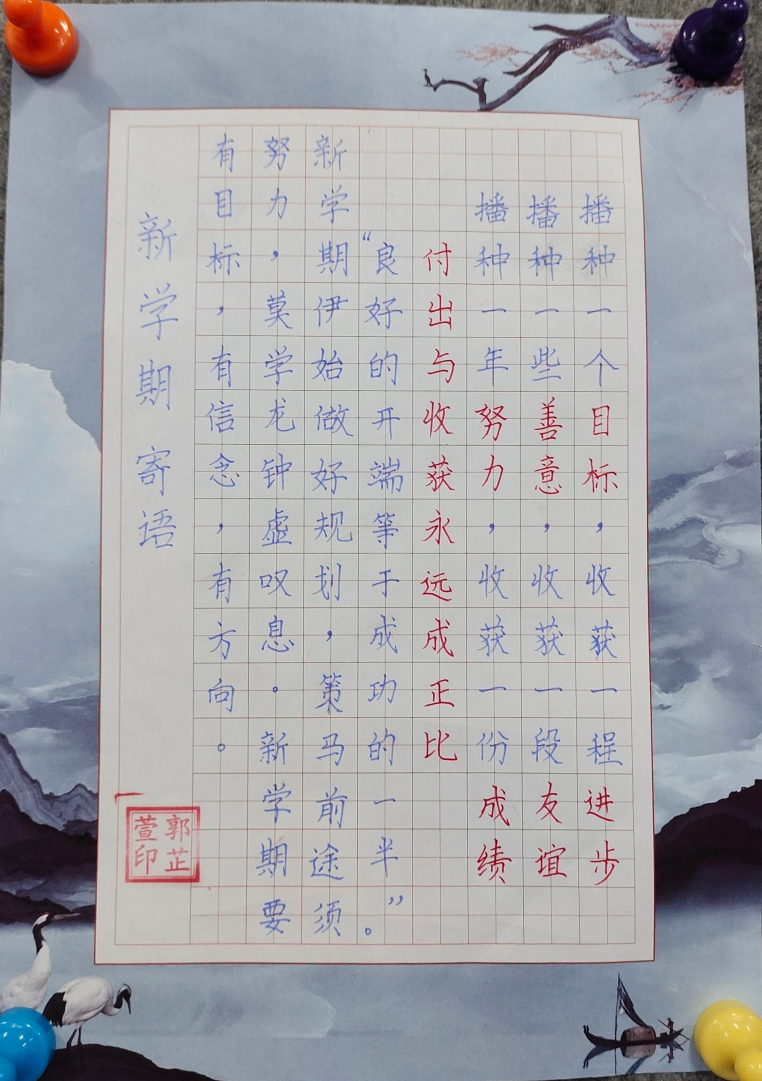 播种一个目标，收获一程进步
播种一些善意，收获一段友谊
播种一年努力，收获一份成绩
付出与收获永远成正比
“良好的开端等于成功的一半。”
新学期伊始做好规划，策马前途须
努力，莫学龙钟虚叹息。新学期要
有目标，有信念，有方向。
新学期寄语
郭芷萱印